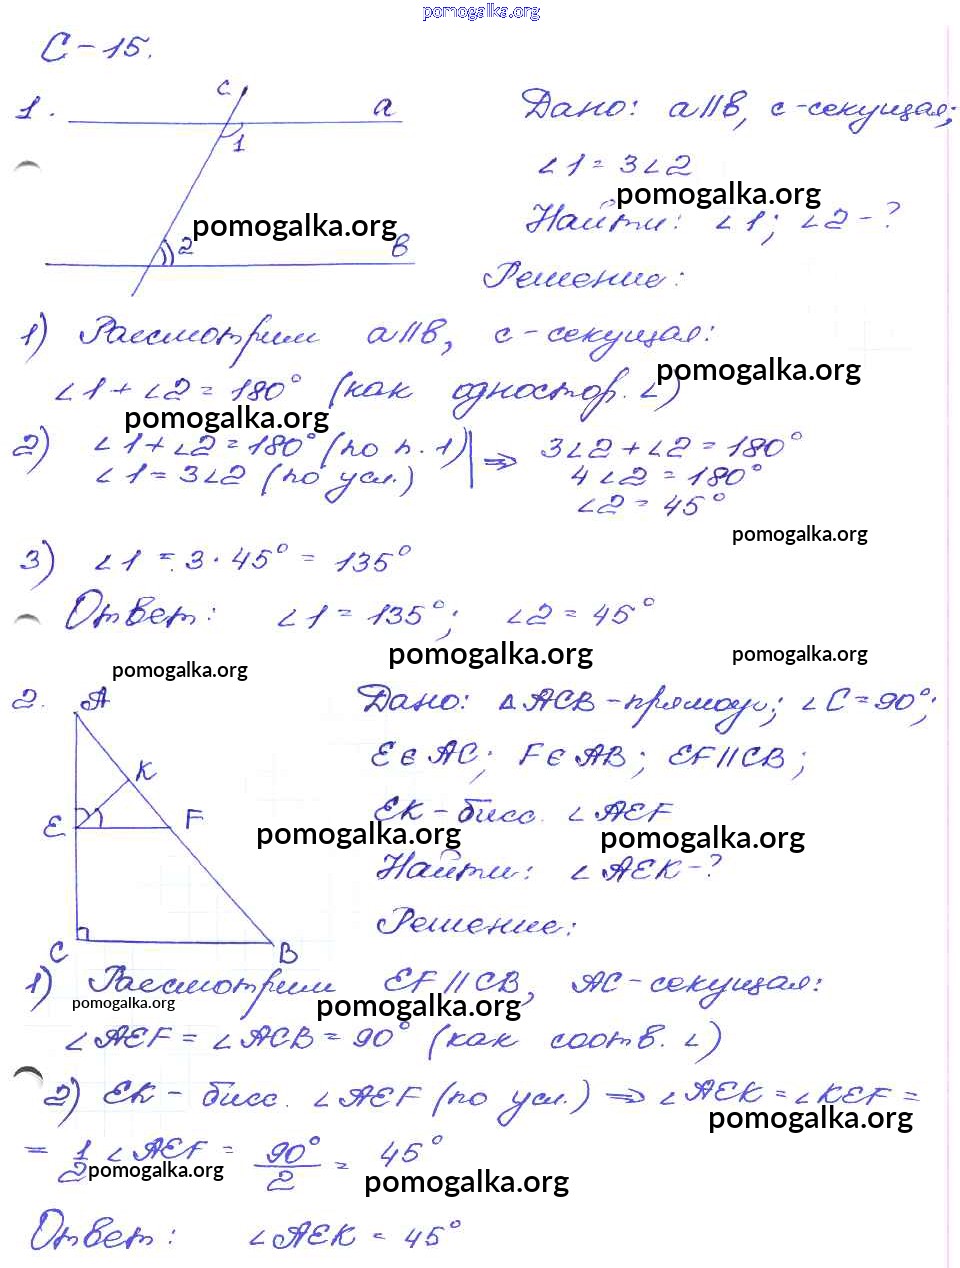 pomogalka.org
С-15.
1.
c
a
1
2
в
Дано: a||в, с-секущая;
∠1 = 3∠2
pomogalka.org
Найти: ∠1; ∠2 - ?
pomogalka.org
Решение:
1) Рассмотрим a||в, с-секущая:
pomogalka.org
∠1 + ∠2 = 180° (как одностор. ∠)
pomogalka.org
2) ∠1 + ∠2 = 180° (по п. 1) | ⇒ 3∠2 + ∠2 = 180°
∠1 = 3∠2 (по усл.) 4∠2 = 180°
∠2 = 45°
pomogalka.org
3) ∠1 = 3 · 45° = 135°
Ответ: ∠1 = 135°; ∠2 = 45°
pomogalka.org pomogalka.org
pomogalka.org
2.
A
K
E
F
C
B
Дано: ΔACB-прямоуг; ∠C = 90°;
E∈AC; F∈AB; EF||CB;
EK-бисс. ∠AEF
pomogalka.org pomogalka.org
Найти: ∠AEK-?
Решение:
1) Рассмотрим EF||CB, AC-секущая:
pomogalka.org pomogalka.org
∠AEF = ∠ACB = 90° (как соотв. ∠)
2) EK - бисс. ∠AEF (по усл.) ⇒ ∠AEK = ∠KEF =
pomogalka.org
= 1/2 ∠AEF = 90°/2 = 45°
pomogalka.org pomogalka.org
Ответ: ∠AEK = 45°